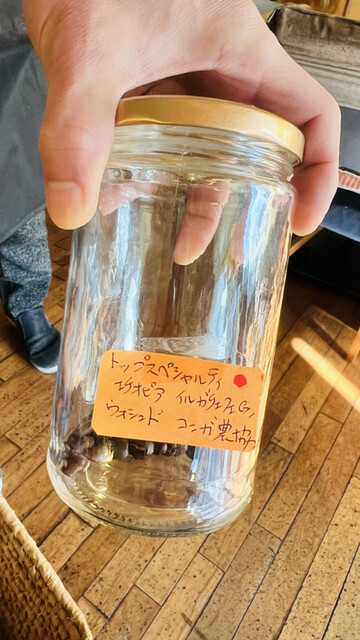 トップスペシャルティ
エチオピア イルガチェフェG1
ウォシュド コンガ農協